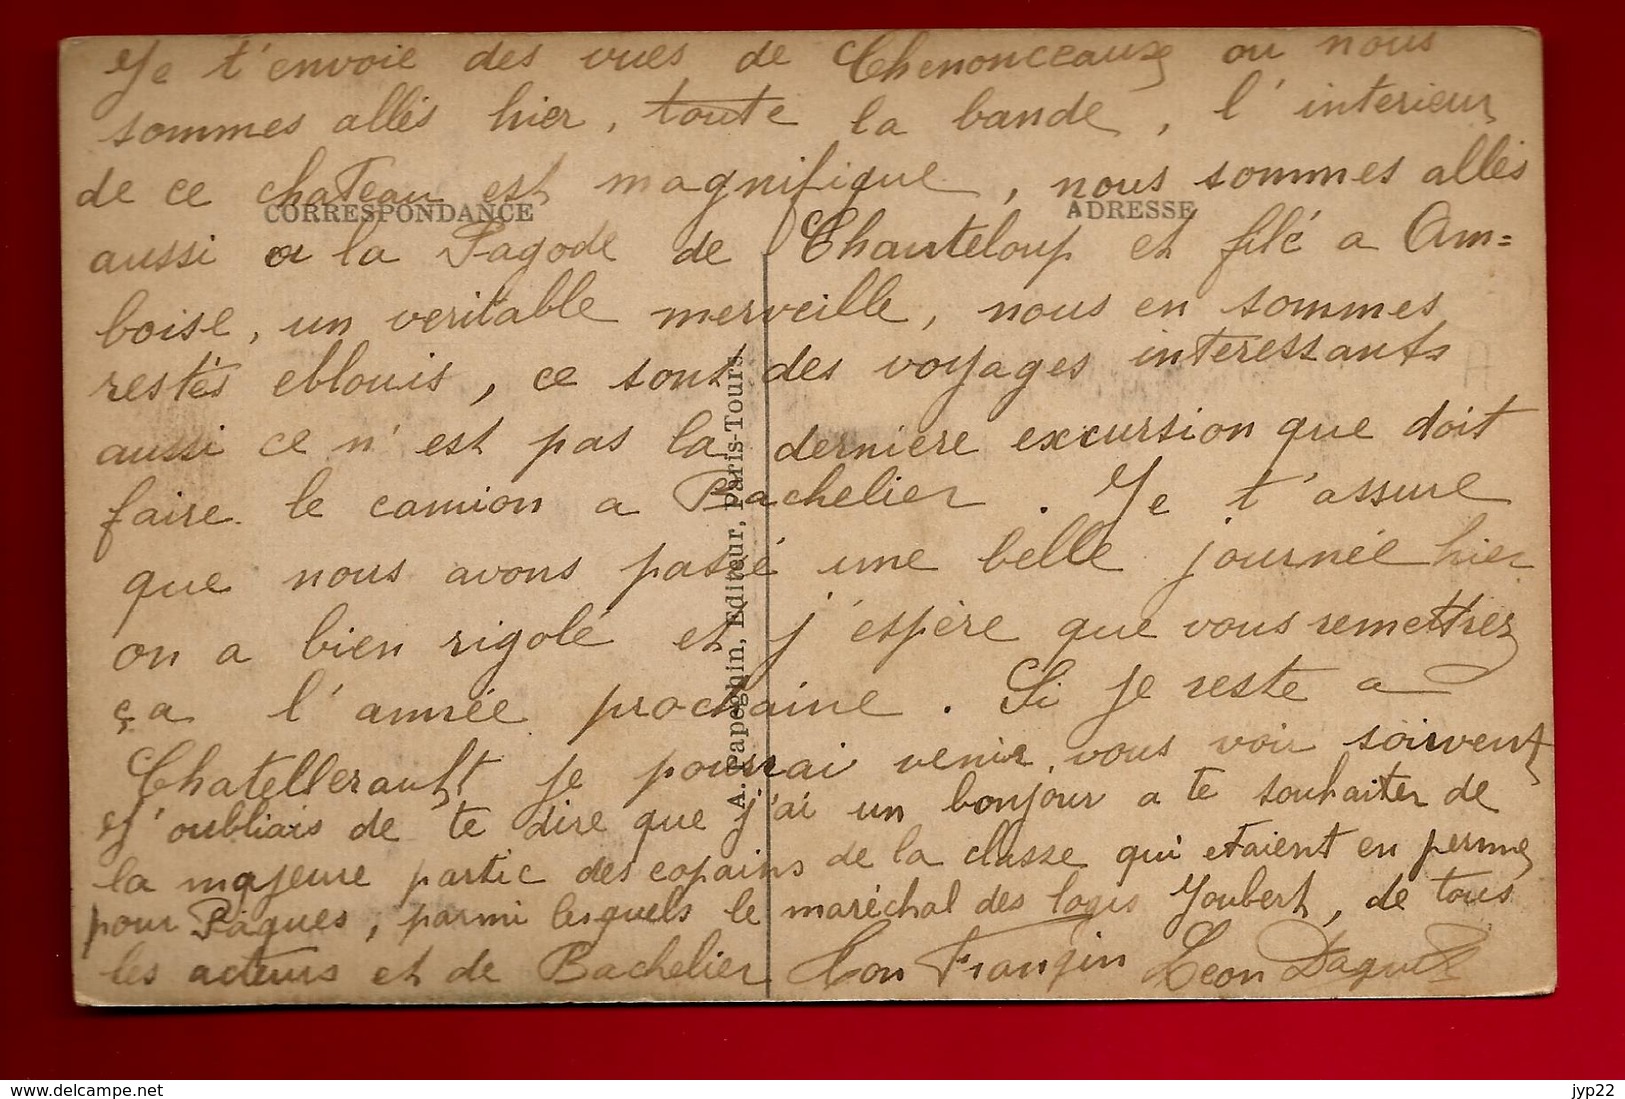 Je t'envoie des vues de Chenonceaux ou nous
sommes allés hier, toute la bande, l'interieur
de ce chateau est magnifique, nous sommes allés
CORRESPONDANCE
ADRESSE
aussi a la Pagode de Chanteloup et filé a Am=
boise, un veritable merveille, nous en sommes
restés eblouis, ce sont des voyages interessants
aussi ce n'est pas la derniere excursion que doit
faire le camion a Bachelier. Je t'assure
que nous avons passé une belle journée hier
on a bien rigolé et j'espère que vous remettrez
ça l'année prochaine. Si je reste a
Chatellerault je pourrai venir vous voir souvent
J'oubliais de te dire que j'ai un bonjour a te souhaiter de
la majeure partie des copains de la classe qui etaient en perme
pour Pâques, parmi lesquels le maréchal des logis Joubert, de tous
les acteurs et de Bachelier Ton Frangin Leon
A. Papeghin, Editeur, Paris-Tours.
delcampe.net
jyp22